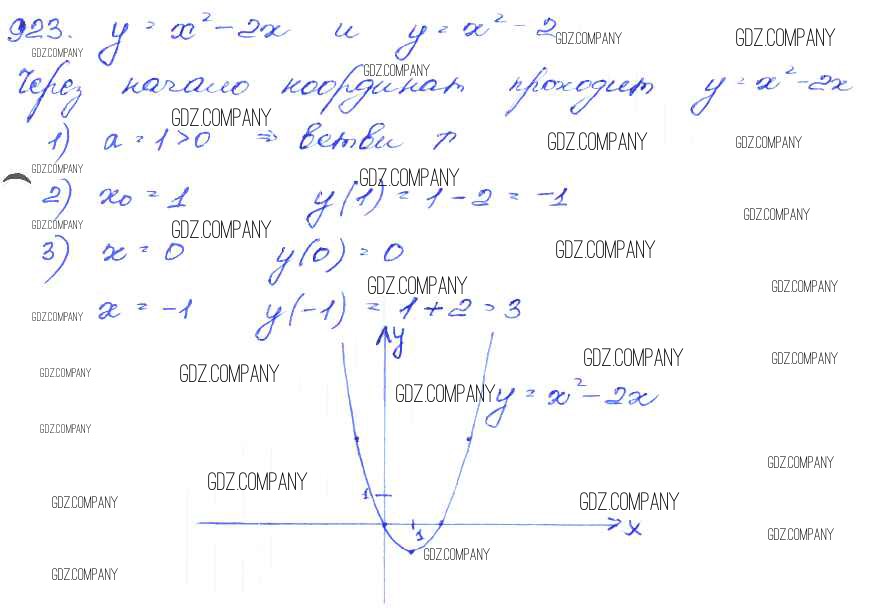 923. y = x² - 2x и y = x² - 2
GDZ.COMPANY GDZ.COMPANY GDZ.COMPANY
Через начало координат проходит y = x² - 2x
GDZ.COMPANY
GDZ.COMPANY
1) a = 1 > 0 ⇒ ветви ↑
GDZ.COMPANY GDZ.COMPANY
GDZ.COMPANY GDZ.COMPANY
2) x₀ = 1 y(1) = 1 - 2 = -1
GDZ.COMPANY GDZ.COMPANY GDZ.COMPANY
3) x = 0 y(0) = 0
GDZ.COMPANY GDZ.COMPANY GDZ.COMPANY
x = -1 y(-1) = 1 + 2 = 3
GDZ.COMPANY
y
GDZ.COMPANY GDZ.COMPANY GDZ.COMPANY GDZ.COMPANY
GDZ.COMPANY y = x² - 2x
GDZ.COMPANY GDZ.COMPANY
GDZ.COMPANY 1
GDZ.COMPANY GDZ.COMPANY
1 x GDZ.COMPANY
GDZ.COMPANY
GDZ.COMPANY